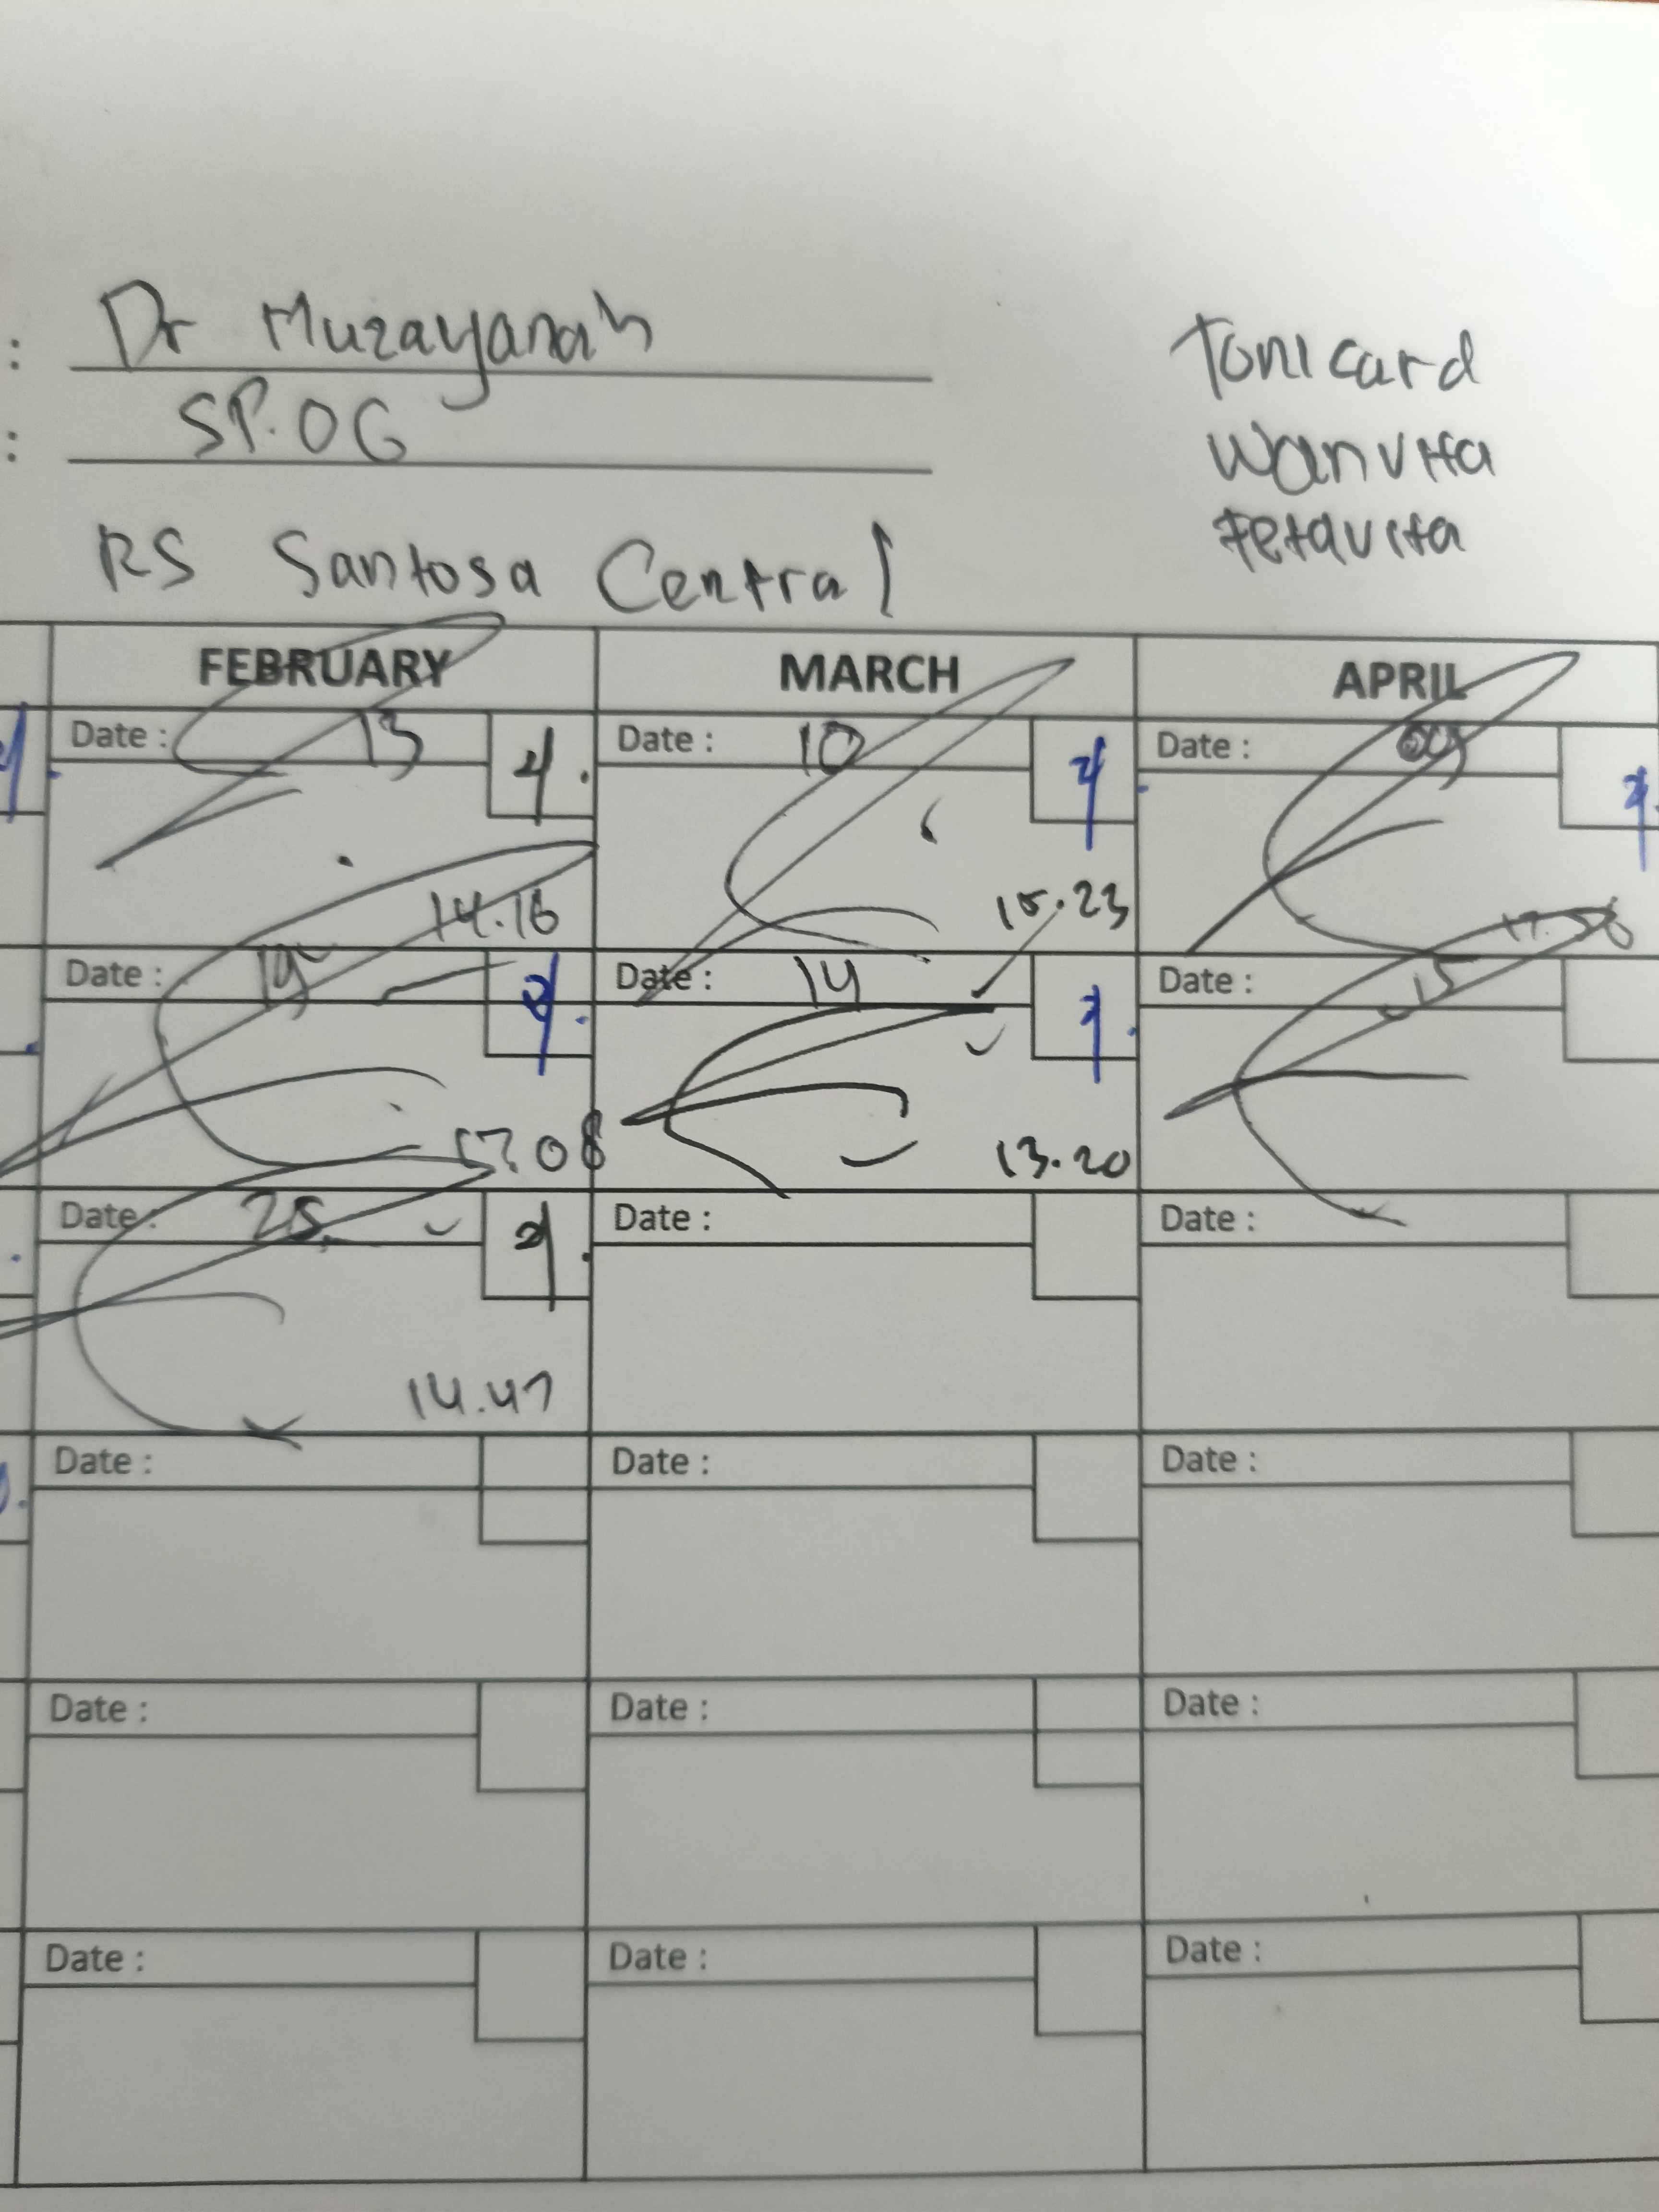 : Dr Muzayanah
: SP.OG
RS Santosa Central
Tonicard
Wanvita
Fetavita
FEBRUARY MARCH APRIL
Date : 13 Date : 10 Date : 09
14.16 15.23 17.56
Date : 19 Date : 14 Date : 15
17.08 13.20
Date : 25 Date : Date :
14.47
Date : Date : Date :
Date : Date : Date :
Date : Date : Date :